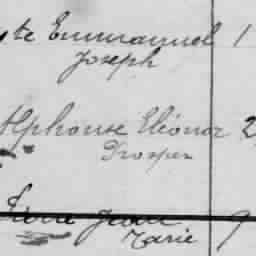 te Emmanuel 1
Joseph
Alphonse Eléonor 2
Prosper
Pierre Jean 9
Marie